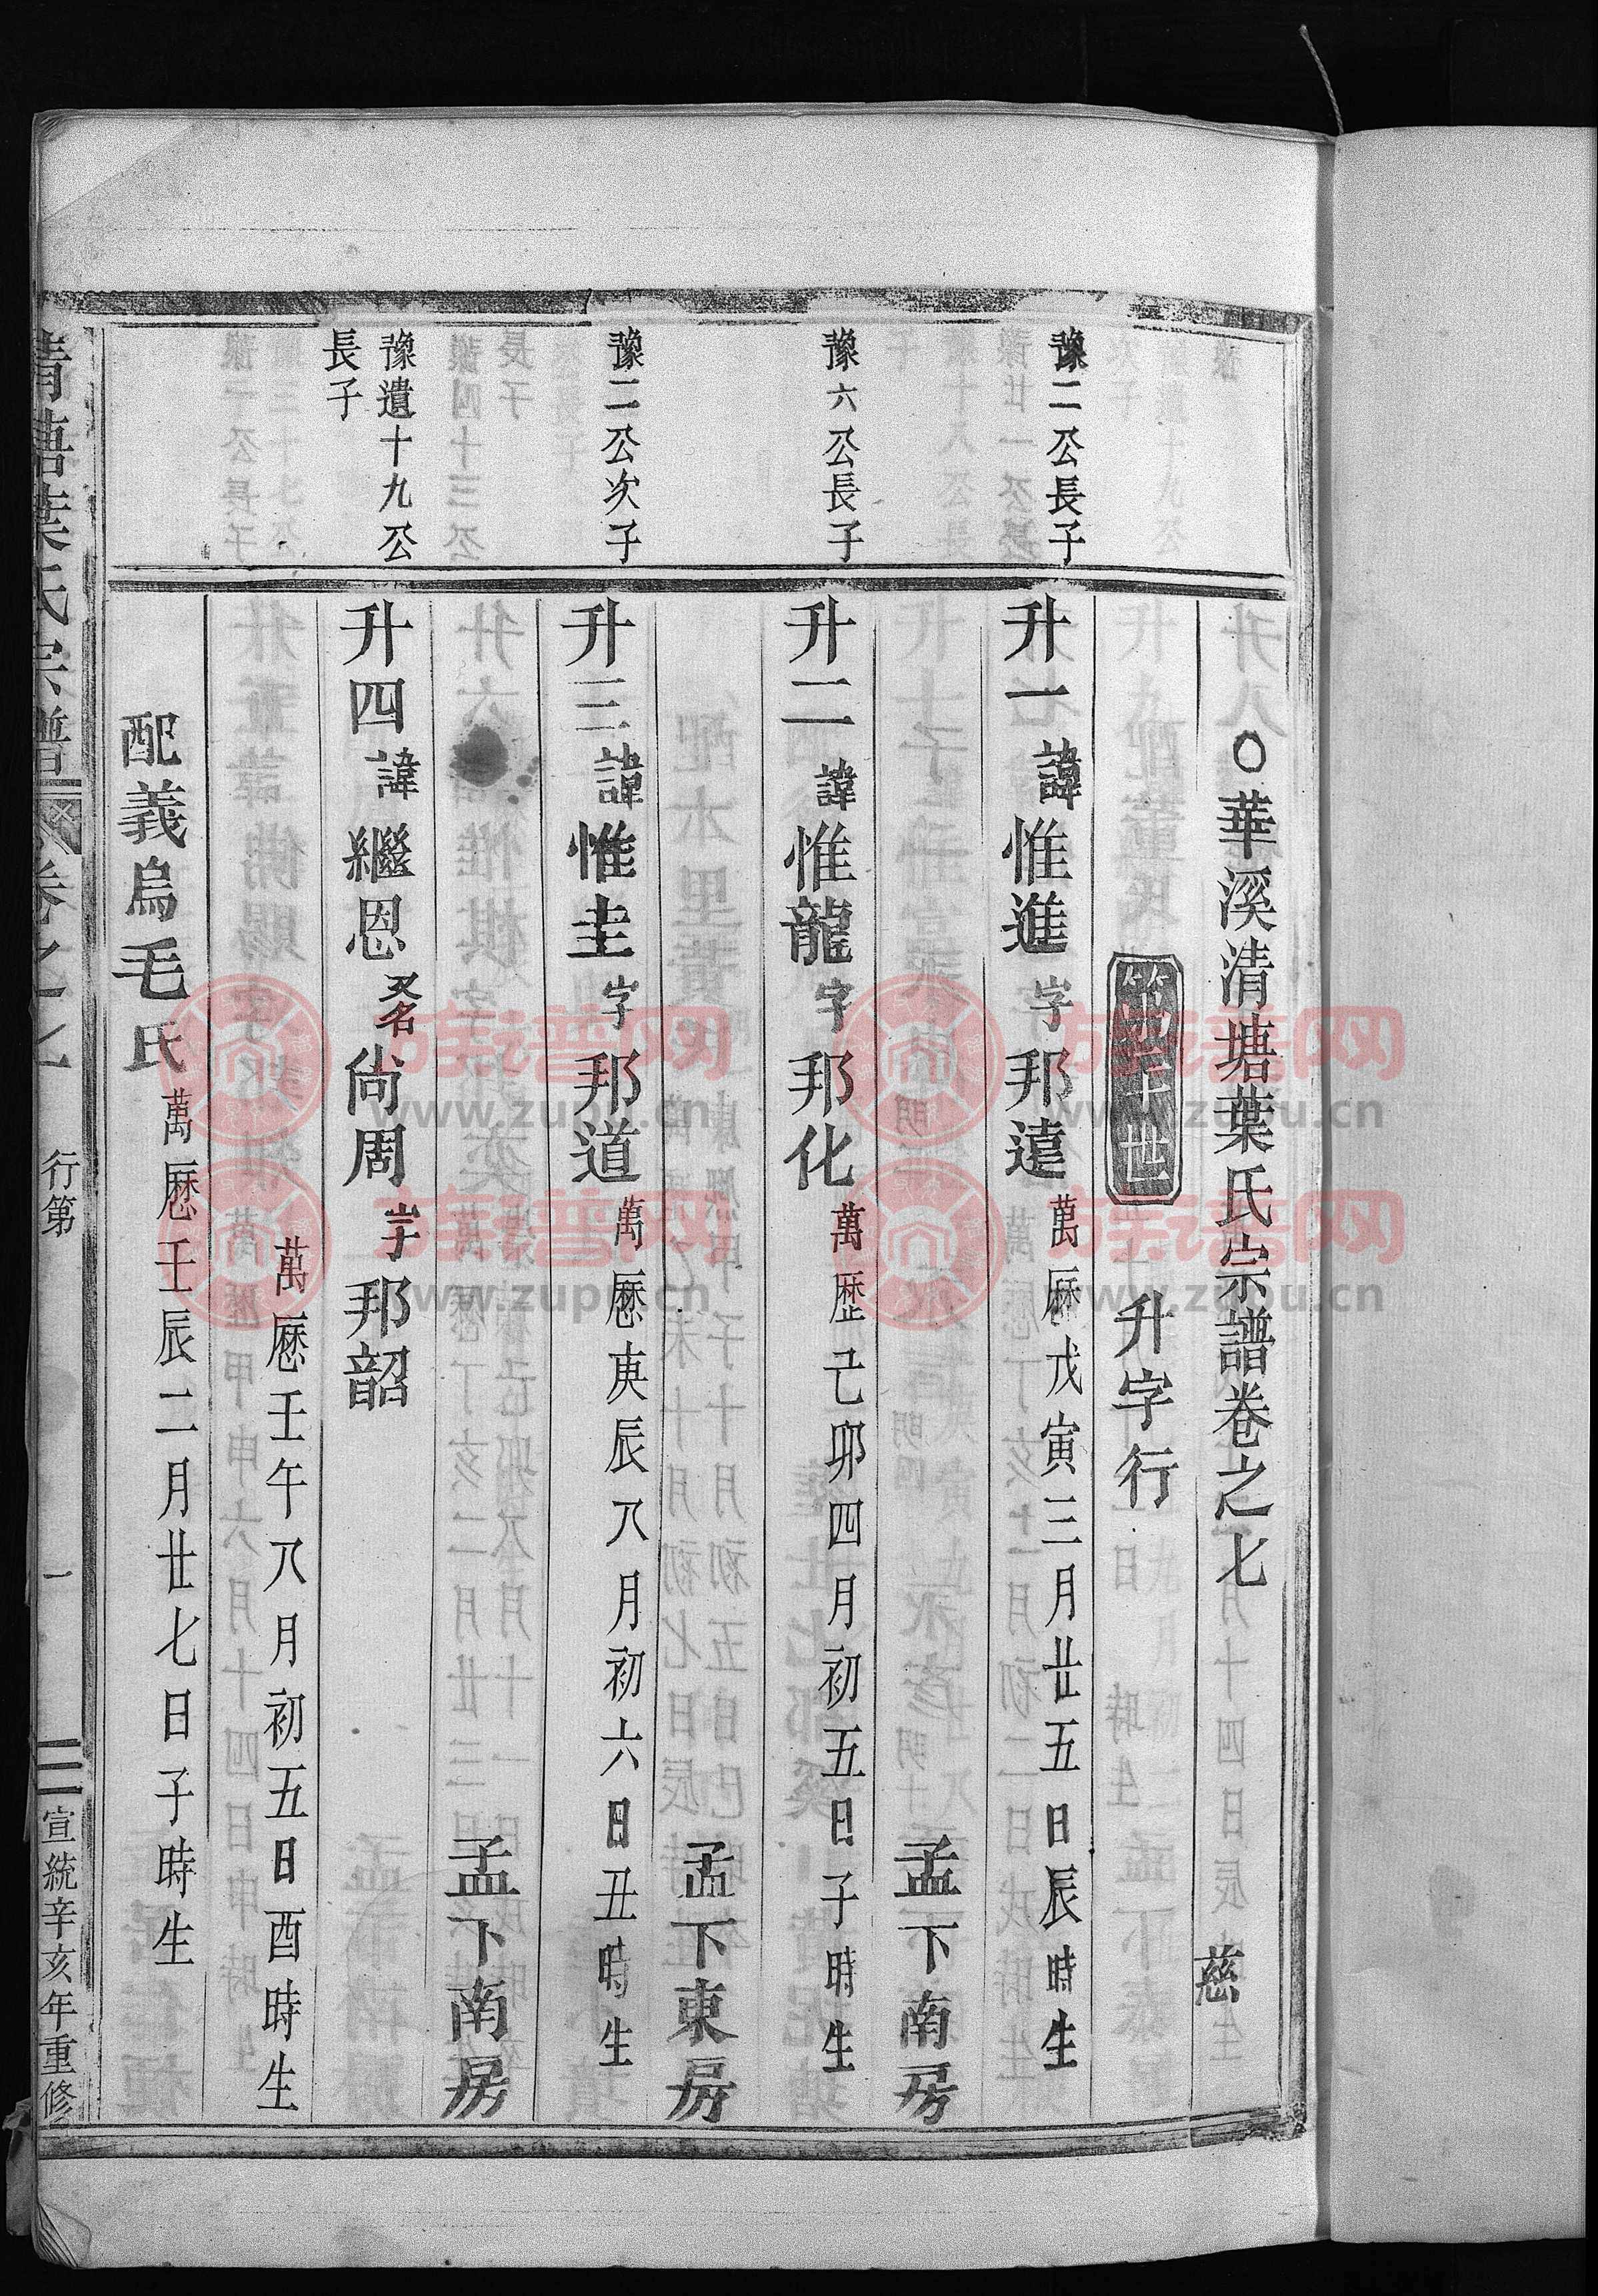 ○華溪清塘葉氏宗譜卷之七
慈
升字行
豫二公長子
升一諱惟進字邦遠萬厯戊寅三月廿五日辰時生
孟下南房
豫六公長子
升二諱惟龍字邦化萬歷己卯四月初五日子時生
孟下東房
豫二公次子
升三諱惟圭字邦道萬厯庚辰八月初六日丑時生
孟下南房
豫遺十九公
長子
升四諱繼恩又名尙周字邦韶
萬厯壬午八月初五日酉時生
配義烏毛氏萬厯壬辰二月廿七日子時生
清塘葉氏宗譜
卷之七
行第
一
宣統辛亥年重修
族譜网
www.zupu.cn